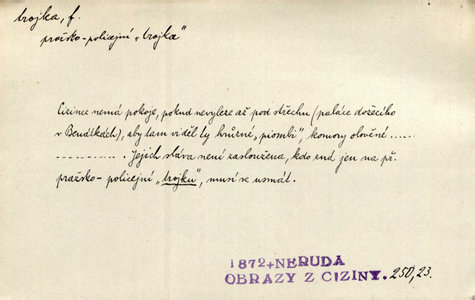 trojka, f.
pražsko-policejní „trojka"
Cizinec nemá pokoje, pokud nevyleze až pod střechu (paláce dožecího
v Benátkách), aby tam viděl ty hrůrné „piombi", komory olověné .....
............ . Jejich sláva není zasloužena, kdo zná jen na př.
pražsko-policejní „trojku", musí se usmát.
1872+NERUDA
OBRAZY Z CIZINY. 250, 23.